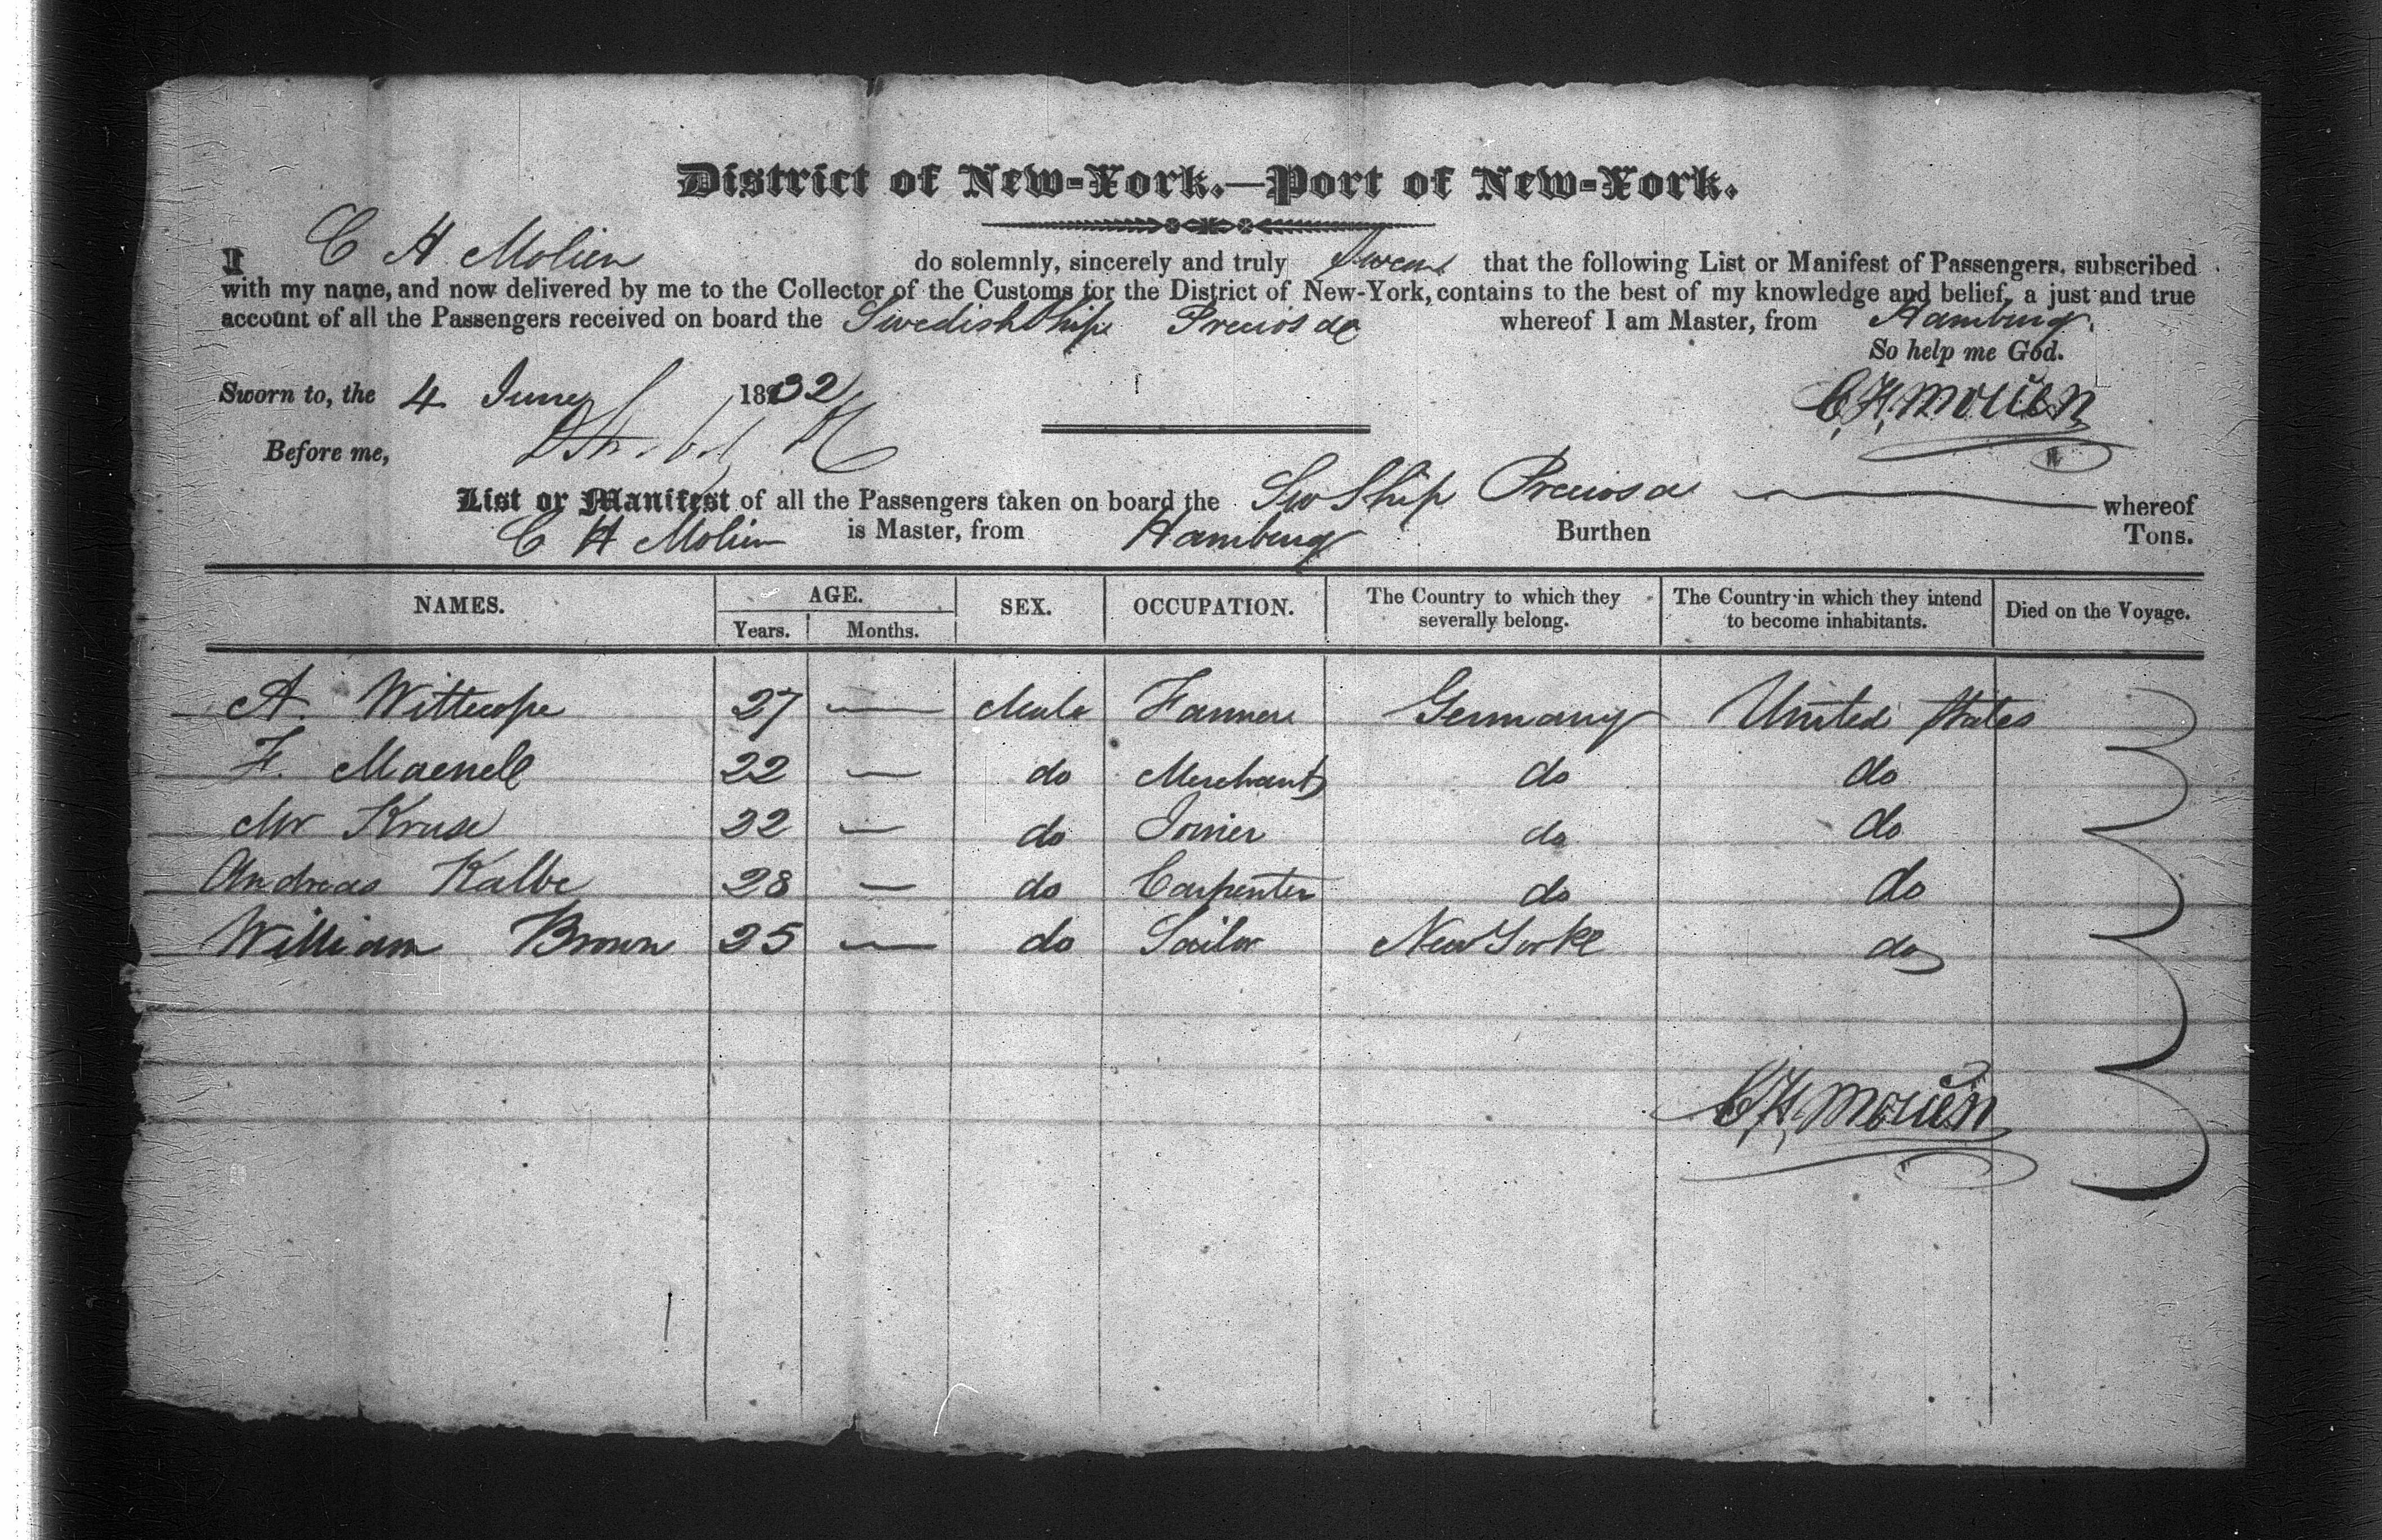 District of New-York.—Port of New-York.
I C H Molien do solemnly, sincerely and truly Swear that the following List or Manifest of Passengers, subscribed
with my name, and now delivered by me to the Collector of the Customs for the District of New-York, contains to the best of my knowledge and belief, a just and true
account of all the Passengers received on board the Swedish Ship Preciosa whereof I am Master, from Hamburg.
So help me God.
Sworn to, the 4 June 1832
C, H, Molien
Before me,
List or Manifest of all the Passengers taken on board the Sw Ship Preciosa whereof
C H Molien is Master, from Hamburg Burthen Tons.
NAMES. AGE. SEX. OCCUPATION. The Country to which they severally belong. The Country in which they intend to become inhabitants. Died on the Voyage.
Years. Months.
A. Wittcope 27 — Male Farmer Germany United States
F. Maenell 22 — do Merchant do do
Mr Kruse 22 — do Joiner do do
Andreas Kalbe 28 — do Carpenter do do
William Brown 25 — do Sailor New Yorke do
C, H, Molien